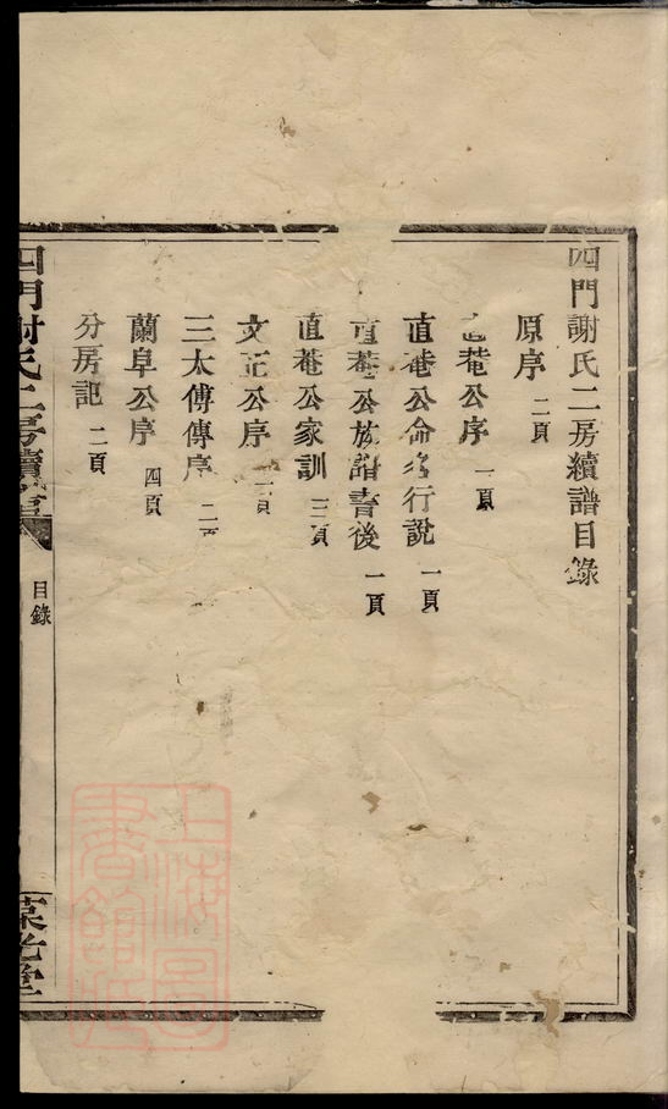 四門謝氏二房續譜目錄
原序 二頁
菴公序 一頁
直菴公命名行說 一頁
直菴公族譜書後 一頁
直菴公家訓 三頁
文正公序 一頁
三太傅傳序 二頁
蘭阜公序 四頁
分房記 二頁
四門謝氏二房續譜
目錄
上海圖書館藏